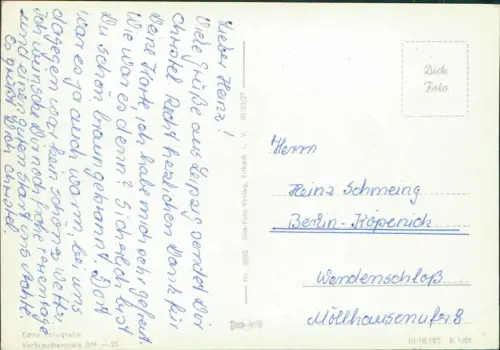 Lieber Heinz!
Viele Grüße aus Leipzig sendet Dir
Christel. Recht herzlichen Dank für
Deine Karte, ich habe mich sehr gefreut.
Wie war es denn? Sicherlich bist
Du schön braungebrannt. Dort
war es ja auch warm, bei uns
dagegen war kein schönes Wetter.
Ich wünsche Dir noch frohe Ferientage
und einen guten Start ins
Es grüßt Dich Christel.
Echte Fotografie
Verbraucherpreis DM —.25
Dick-Foto-Verlag, Erlbach i. V. III/23/27
Dick
Foto
Herrn
Heinz Schmeing
Berlin-Köpenick
Wendenschloß
Möllhausenufer 8
III/18/197